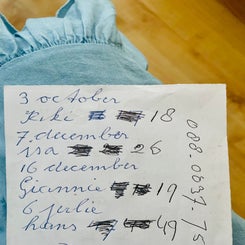 3 october
Kiki 18
7 december
Isa 26
16 december
Giannie 19
6 julie
hans 49